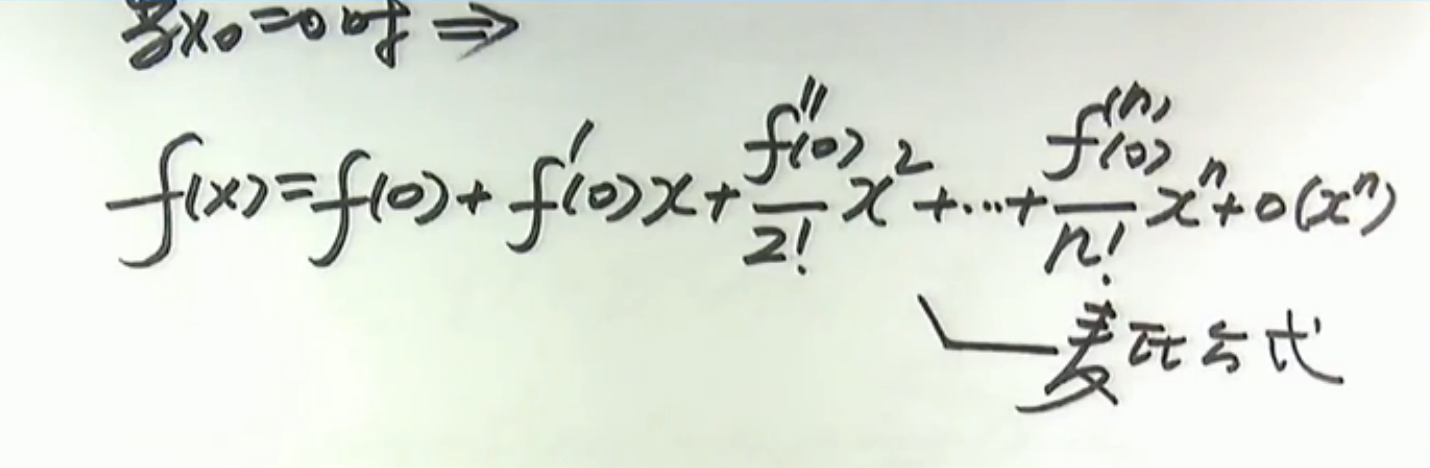 当x₀=0时⇒
f(x)=f(0)+f'(0)x+\frac{f''(0)}{2!}x²+…+\frac{f^{(n)}(0)}{n!}xⁿ+o(xⁿ)
麦氏公式